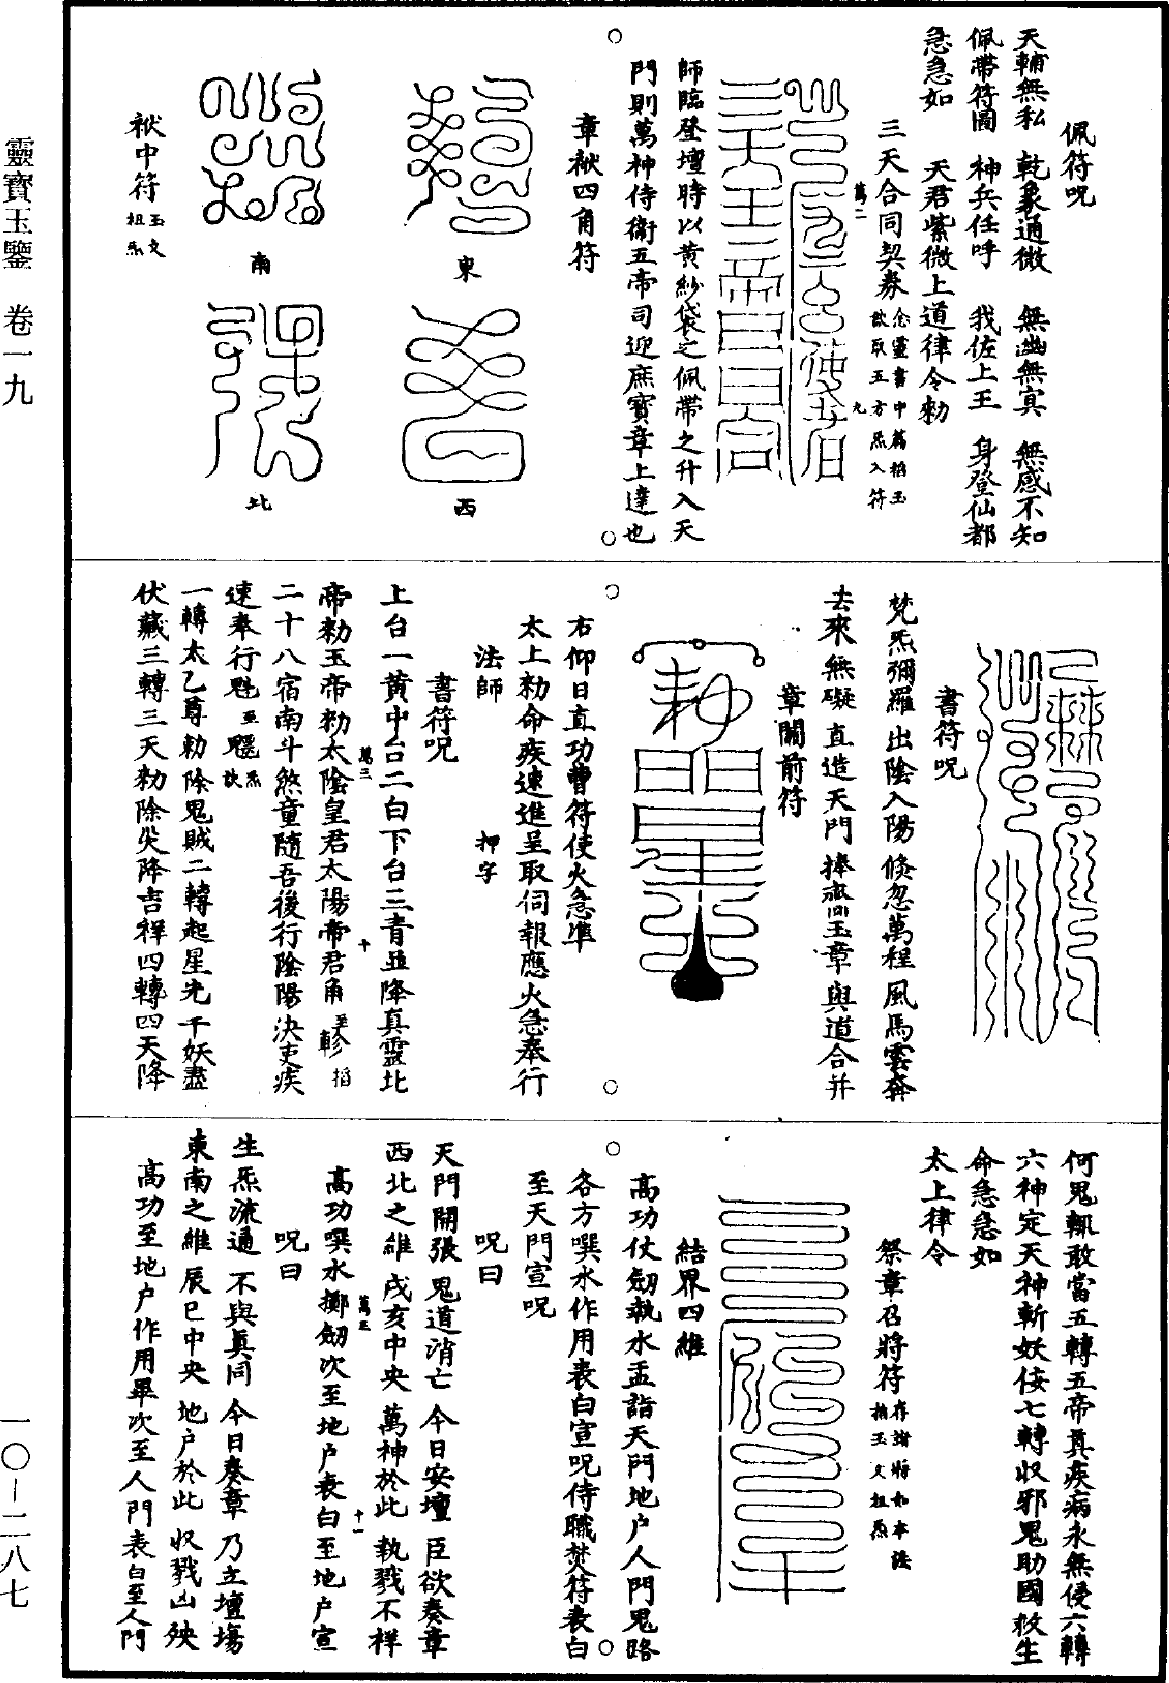 佩符呪
天輔無私　乾象通微　無幽無冥　無感不知
佩帶符圖　神兵任呼　我佐上王　身登仙都
急急如　天君紫微上道律令勑
三天合同契券念靈書中篇掐玉
訣取五方炁入符
萬二　九
師臨登壇時以黃紗袋之佩帶之升入天
門則萬神侍衛五帝司迎庶寶章上達也
章袱四角符
東
西
南
北
袱中符玉文
祖炁
書符呪
梵炁彌羅　出陰入陽　倏忽萬程　風馬雲奔
去來無礙　直造天門　捧齎玉章　與道合并
章關前符
右仰日直功曹符使火急準
太上勑命疾速進呈取伺報應火急奉行
法師　押字
書符呪
上台一黃中台二白下台三青並降真靈北
帝勑玉帝勑太陰皇君太陽帝君角至軫掐
萬三　十
二十八宿南斗煞童隨吾後行陰陽決吏疾
速奉行魁至魒炁訣
一轉太乙尊勑除鬼賊二轉起星光千妖盡
伏藏三轉三天勑除災降吉祥四轉四天降
何鬼輒敢當五轉五帝真疾病永無侵六轉
六神定天神斬妖侫七轉收邪鬼助國救生
命急急如
太上律令
祭章召將符存諸將如本法
掐玉文祖炁
結界四維
高功仗劒執水盂詣天門地户人門鬼路
各方噀水作用表白宣呪侍職焚符表白
至天門宣呪
呪曰
天門開張　鬼道消亡　今日安壇　臣欲奏章
西北之維　戌亥中央　萬神於此　執戮不祥
高功噀水擲劒次至地户表白至地户宣
萬三　十一
呪曰
生炁流通　不與真同　今日奏章　乃立壇場
東南之維　辰巳中央　地户於此　收戮凶殃
高功至地户作用畢次至人門表白至人門
靈寶玉鑒　卷一九
一〇—二八七